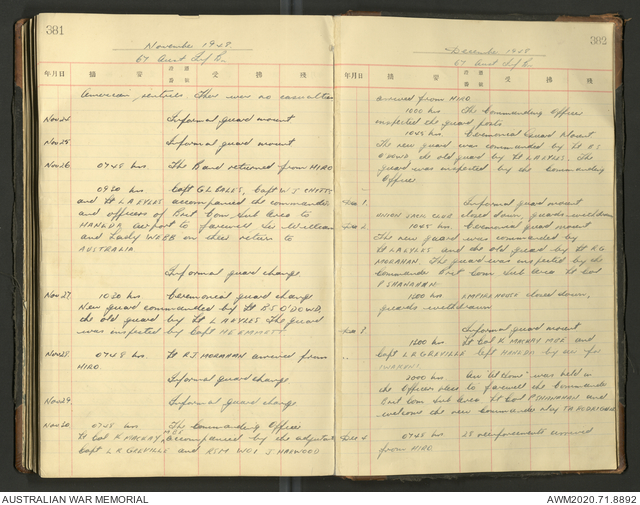 381
November 1948
67 Aust Inf Bn
年月日 摘 要
American sentries. There were no casualties
Nov 24 Informal guard mount
Nov 25 Informal guard mount
Nov 26 0745 hrs. The Band returned from HIRO.
0930 hrs Capt G L COLES, Capt W J
and Lt L A EYLES accompanied the commander
and officers of Brit Com Sub Area to
HANEDA airport to farewell Sir William
and Lady WEBB on their return to
AUSTRALIA.
Informal guard change
Nov 27 1030 hrs Ceremonial guard change
New guard commanded by Lt B S O'DOWD,
the old guard by Lt L A EYLES. The guard
was inspected by Capt
Nov 28. 0748 hrs Lt R J MORAHAN arrived from
HIRO.
Informal guard change
Nov 29. Informal guard change
Nov 30 0745 hrs The Commanding Officer
Lt Col K MACKAY MBE accompanied by the adjutant
Capt L R GREVILLE and RSM WO1 J HARWOOD
382
December 1948
67 Aust Inf Bn
年月日 摘 要
arrived from HIRO.
1000 hrs The Commanding Officer
inspected the guard posts
1045 hrs Ceremonial Guard Mount
The new guard was commanded by Lt B S
O'DOWD, the old guard by Lt L A EYLES. The
guard was inspected by the Commanding
Officer
Dec 1. Informal guard mount
UNION JACK CLUB closed down, guards withdrawn
Dec 2. 1045 hrs Ceremonial guard mount
The new guard was commanded by
Lt L A EYLES and the old guard by Lt R J
MORAHAN. The guard was inspected by the
Commander Brit Com Sub Area Lt Col
P SHANAHAN
1800 hrs EMPIRE HOUSE closed down,
guards withdrawn
Dec 3. Informal guard mount
1200 hrs Lt Col K MACKAY MBE and
Capt L R GREVILLE left HANEDA by air for
IWAKUNI
2000 hrs An "at Home" was held in
the Officers Mess to farewell the Commander
Brit Com Sub Area Lt Col P SHANAHAN and
welcome the new Commander Maj
Dec 4 0745 hrs 25 reinforcements arrived
from HIRO
AUSTRALIAN WAR MEMORIAL
AWM2020.71.8892